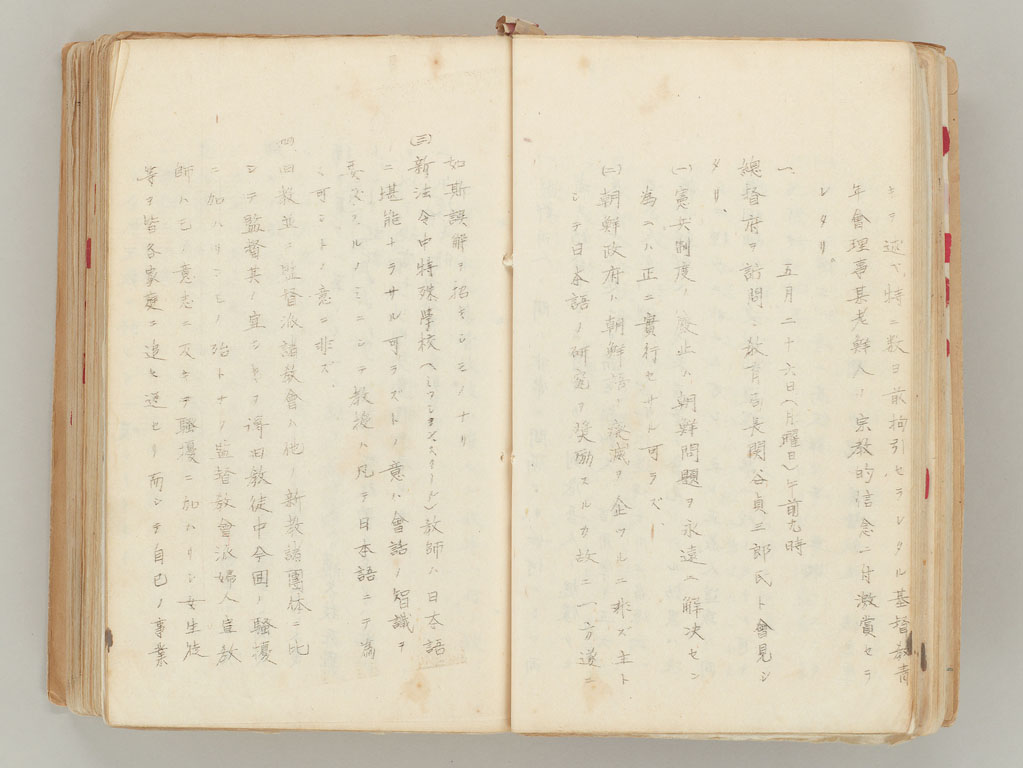 キヲ述ベ特ニ数日前拘引セラレタル基督教青
年會理事某老鮮人ノ宗教的信念ニ付激賞セラ
レタリ。
一、五月二十六日(月曜日)午前九時
總督府ヲ訪問シ教育局長関谷貞三郎氏ト會見シ
タリ、
(一)憲兵制度ノ廃止ハ朝鮮問題ヲ永遠ニ解決セン
為ニハ正ニ實行セサル可ラズ、
(二)朝鮮政府ハ朝鮮語ノ衰滅ヲ企ツルニ非ズ主ト
シテ日本語ノ研究ヲ奨励スルカ故ニ一方遂ニ
如斯誤解ヲ招キシモノナリ
(三)新法令中特殊學校(ミッションスクール)教師ハ日本語
ニ堪能ナラサル可ラズトノ意ハ會話ノ智識ヲ
要スルノミニシテ教授ハ凡テ日本語ニテ為
ス可シトノ意ニ非ズ
(四)旧教並ニ監督派諸教會ハ他ノ新教諸團体ニ比
シテ監督其ノ宜シキヲ得旧教徒中今回ノ騒擾
ニ加ハリシモノ殆トナク監督教會派婦人宣教
師ハ己ノ意志ニ反キテ騒擾ニ加ハリシ女生徒
等ヲ皆各家庭ニ追ヒ還セリ而シテ自己ノ事業